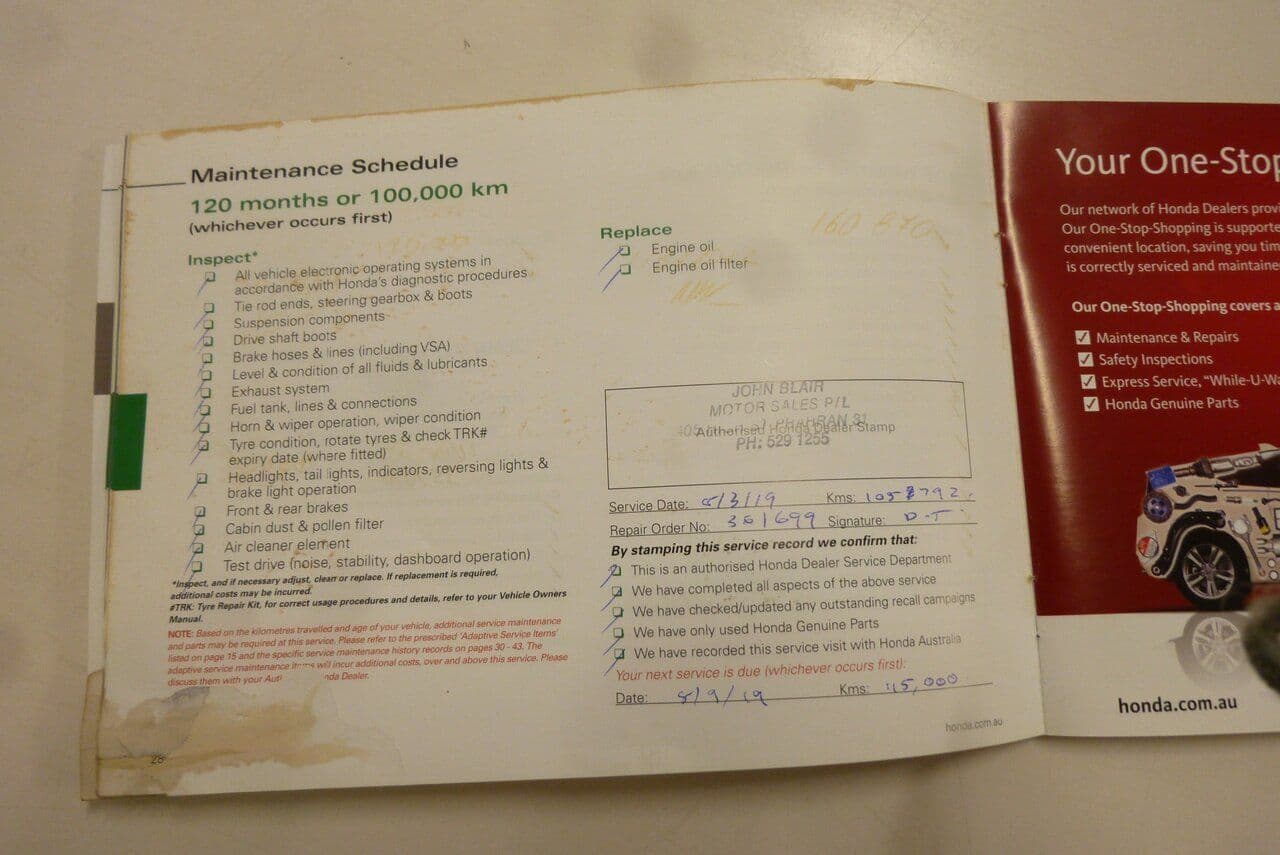 Maintenance Schedule
120 months or 100,000 km
(whichever occurs first)
Inspect*
All vehicle electronic operating systems in
accordance with Honda's diagnostic procedures
Tie rod ends, steering gearbox & boots
Suspension components
Drive shaft boots
Brake hoses & lines (including VSA)
Level & condition of all fluids & lubricants
Exhaust system
Fuel tank, lines & connections
Horn & wiper operation, wiper condition
Tyre condition, rotate tyres & check TRK#
expiry date (where fitted)
Headlights, tail lights, indicators, reversing lights &
brake light operation
Front & rear brakes
Cabin dust & pollen filter
Air cleaner element
Test drive (noise, stability, dashboard operation)
*Inspect, and if necessary adjust, clean or replace. If replacement is required,
additional costs may be incurred.
#TRK: Tyre Repair Kit, for correct usage procedures and details, refer to your Vehicle Owners
Manual.
NOTE: Based on the kilometres travelled and age of your vehicle, additional service maintenance
and parts may be required at this service. Please refer to the prescribed 'Adaptive Service Items'
listed on page 15 and the specific service maintenance history records on pages 30 - 43. The
adaptive service maintenance items will incur additional costs, over and above this service. Please
discuss them with your Dealer.
28
Replace
Engine oil
Engine oil filter
JOHN BLAIR
MOTOR SALES P/L
Authorised Honda Dealer Stamp
PRAHRAN 31
PH: 529 1255
Service Date: 8/3/19 Kms:
Repair Order No: 361699 Signature: D-T
By stamping this service record we confirm that:
This is an authorised Honda Dealer Service Department
We have completed all aspects of the above service
We have checked/updated any outstanding recall campaigns
We have only used Honda Genuine Parts
We have recorded this service visit with Honda Australia
Your next service is due (whichever occurs first):
Date: 8/9/19 Kms: 115,000
honda.com.au
Your One-Stop
Our network of Honda Dealers provi
Our One-Stop-Shopping is supporte
convenient location, saving you tim
is correctly serviced and maintaine
Our One-Stop-Shopping covers a
Maintenance & Repairs
Safety Inspections
Express Service, "While-U-Wa
Honda Genuine Parts
honda.com.au